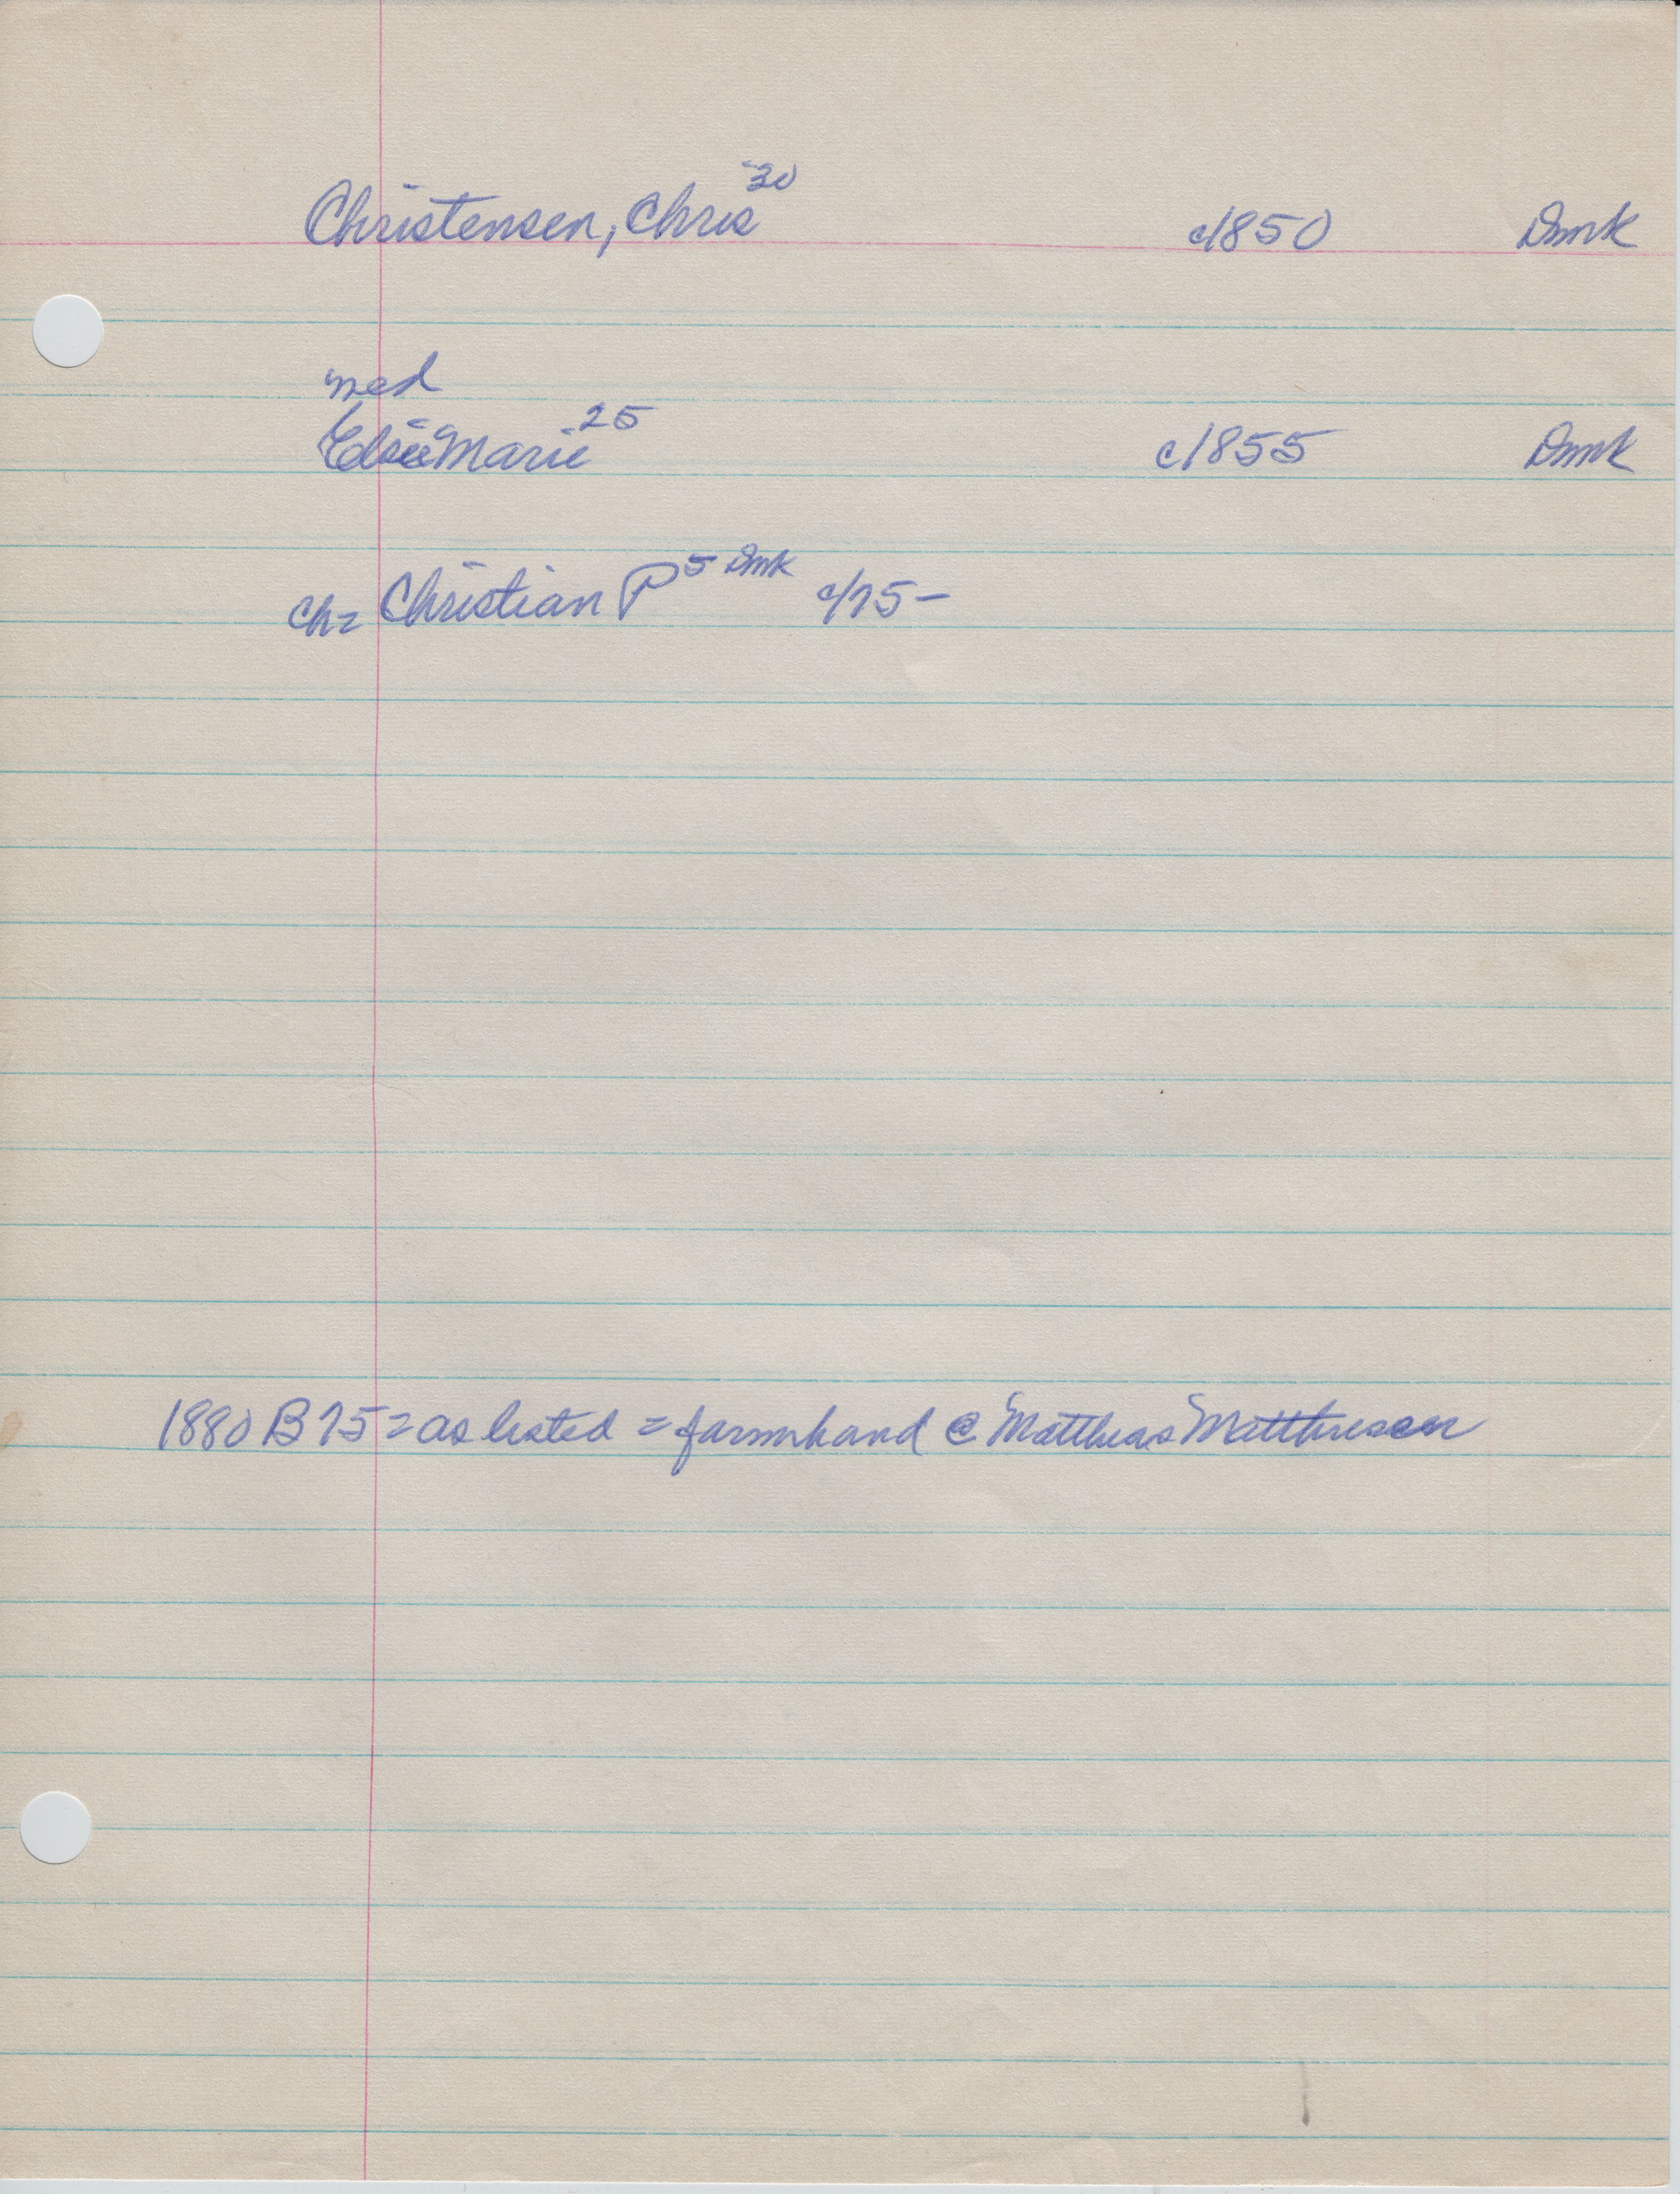 Christensen, Chris 30 c1850 Dmk
med
Elsie Marie 25 c1855 Dmk
Ch= Christian P 5 Dmk c/75-
1880 B 75 = as listed = farmhand @ Matthias Matthiesen